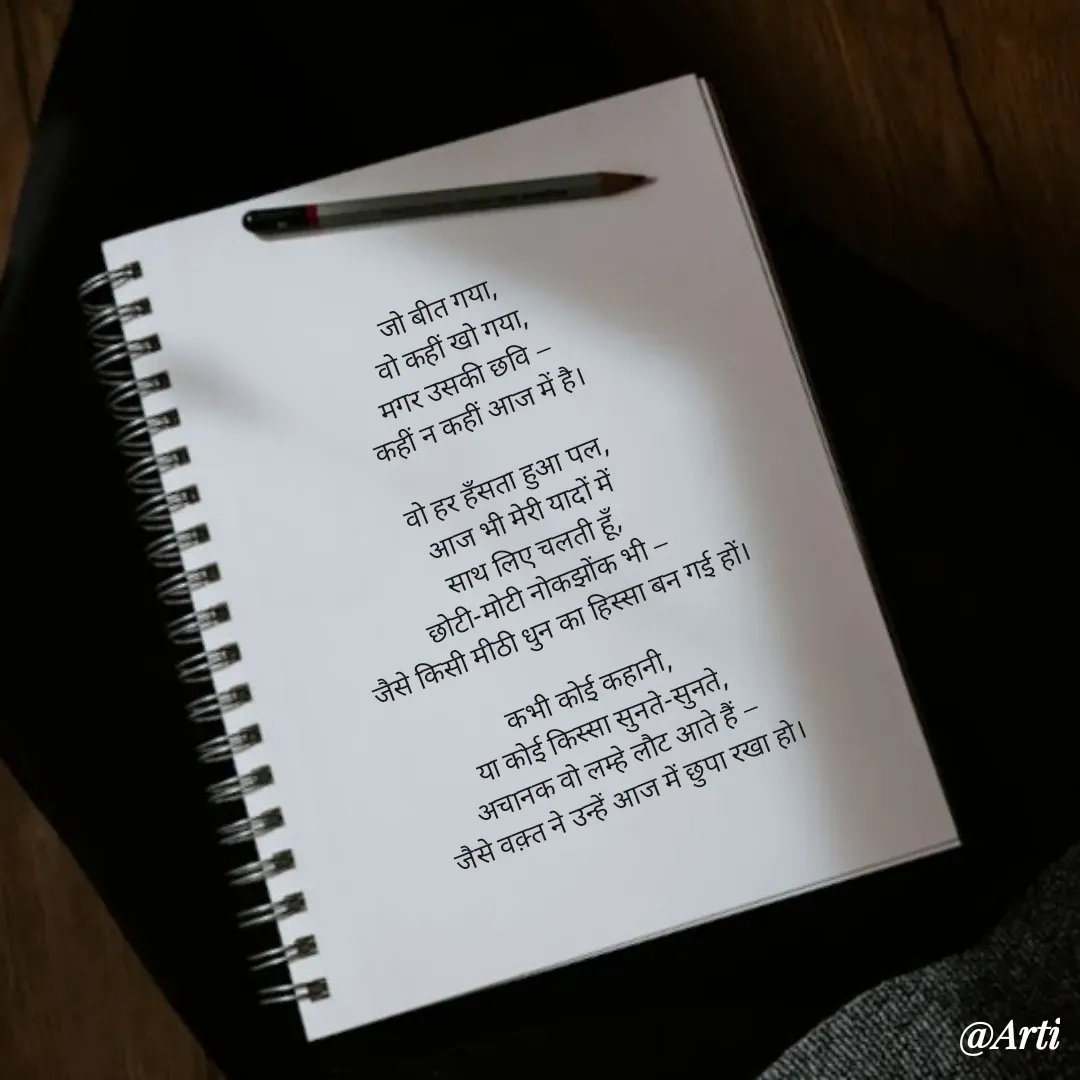 जो बीत गया,
वो कहीं खो गया,
मगर उसकी छवि –
कहीं न कहीं आज में है।
वो हर हँसता हुआ पल,
आज भी मेरी यादों में
साथ लिए चलती हूँ,
छोटी-मोटी नोकझोंक भी –
जैसे किसी मीठी धुन का हिस्सा बन गई हों।
कभी कोई कहानी,
या कोई किस्सा सुनते-सुनते,
अचानक वो लम्हे लौट आते हैं –
जैसे वक़्त ने उन्हें आज में छुपा रखा हो।
@Arti